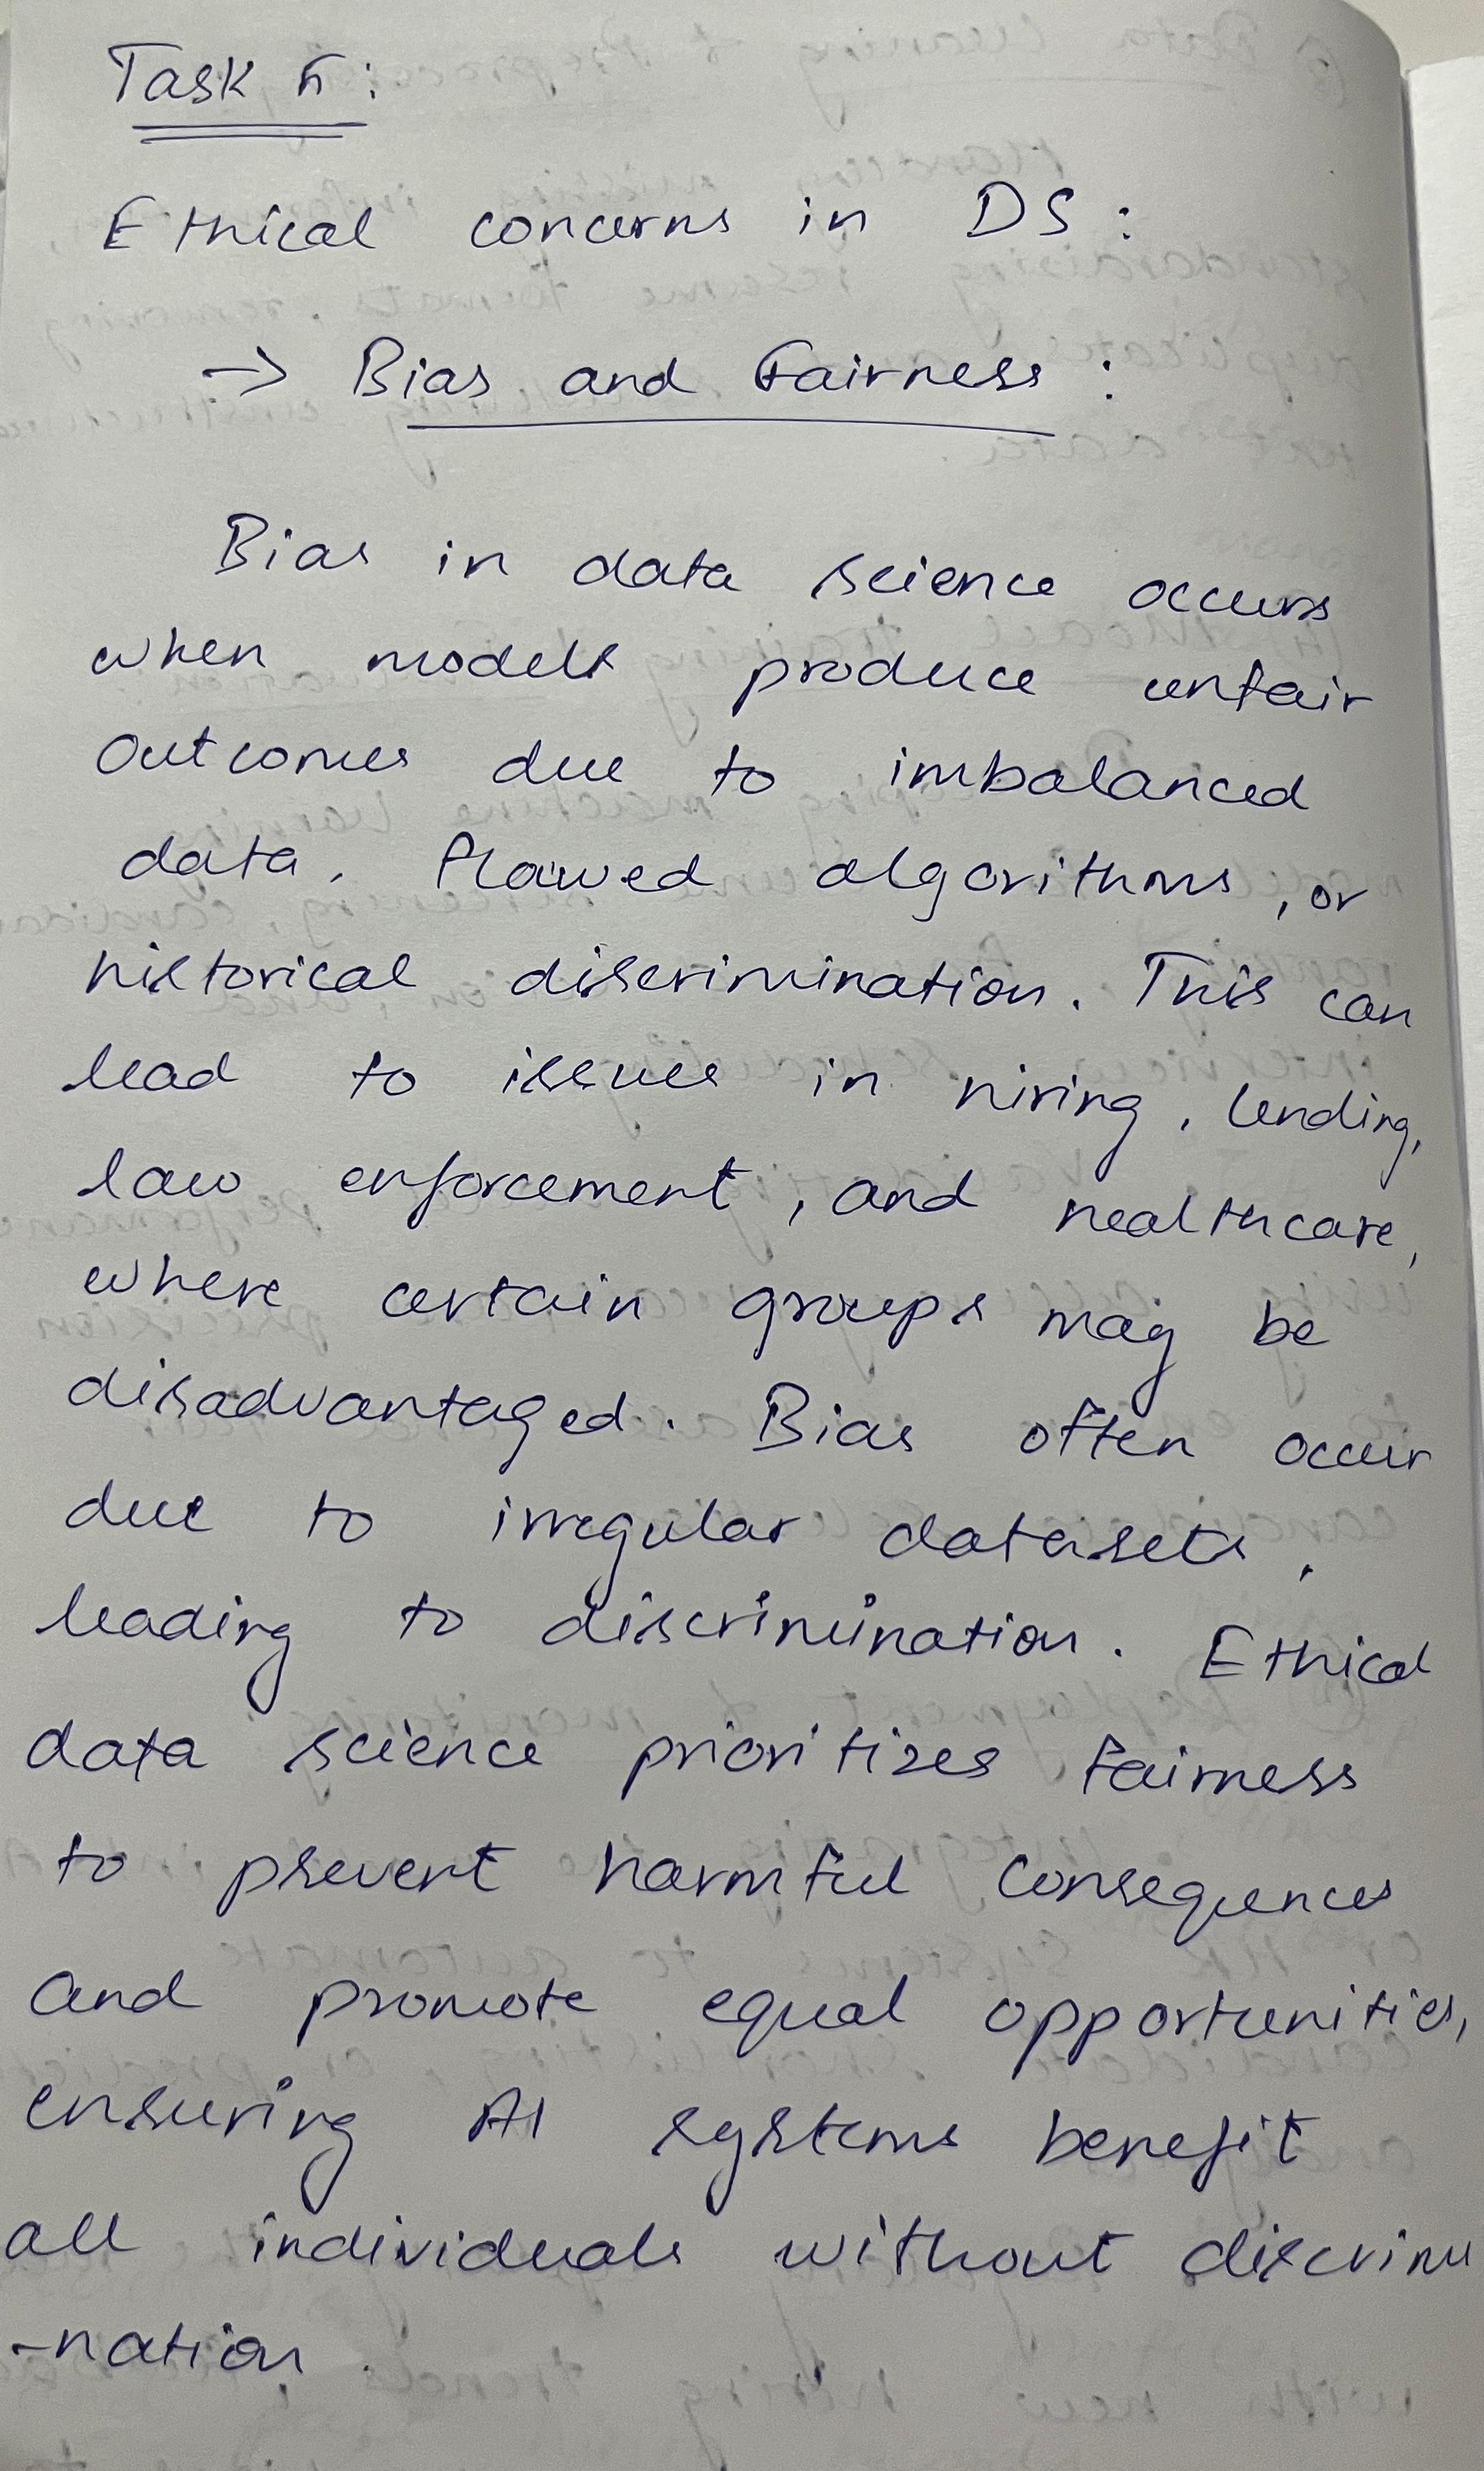 Task 5:
Ethical concerns in DS:
→ Bias and Fairness:
Bias in data science occurs
when models produce unfair
outcomes due to imbalanced
data, flawed algorithms, or
historical discrimination. This can
lead to issues in hiring, lending,
law enforcement, and healthcare,
where certain groups may be
disadvantaged. Bias often occur
due to irregular datasets,
leading to discrimination. Ethical
data science prioritizes fairness
to prevent harmful consequences
and promote equal opportunities,
ensuring AI systems benefit
all individuals without discrimi
-nation.